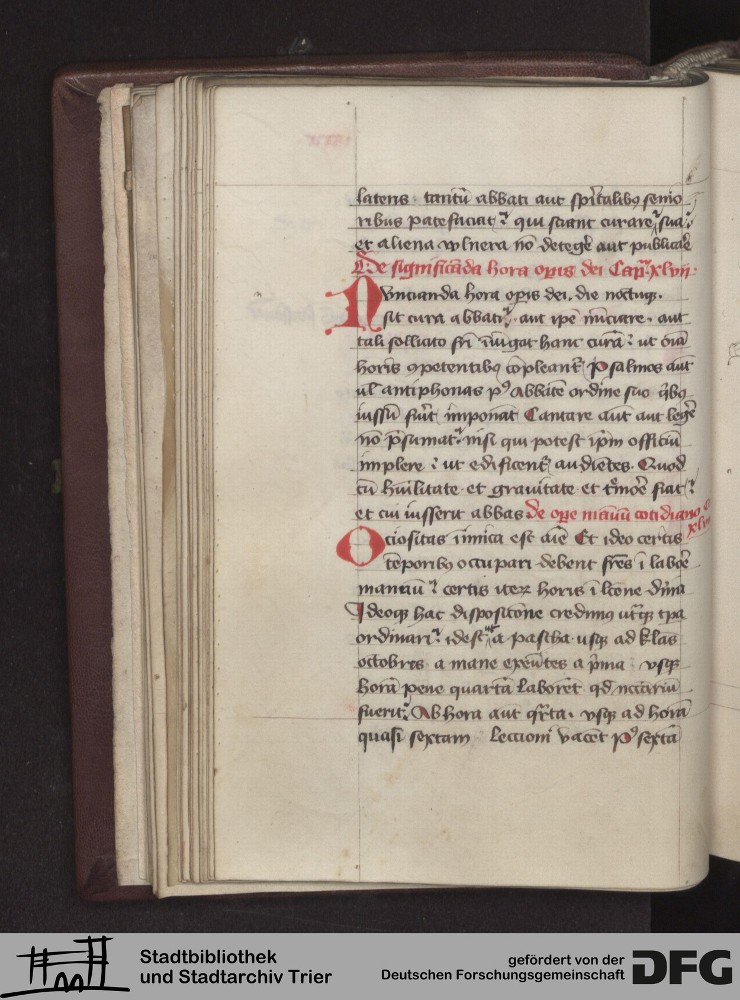 latens · tantū abbati aut spiritalibꝯ senio
ribus patefaciat qui sciant curare sua
et aliena vulnera nō detegē aut publicāe
De significāda hora opis dei Cap xlvii
Nvncianda hora opis dei, die noctuqꝫ
sit cura abbati, aut ipē nūciare · aut
tali sollicito fri iniūgat hanc curā ut oīa
horis ꝯpetentibꝯ cōpleant Psalmos aut
ul antiphonas pꝰ Abbatē ordine suo qibꝯ
iussū fuīt imponāt Cantare aut aut legē
nō p̄sumat nisi qui potest ipm̄ offitiū
implere ut edificent audiētes. Quod
cū hūilitate et gravitate et tmoē fiat
et cui iusserit abbas de ope manuū cotidiano c
xlviii
Ociositas inimica est aīe Et ideo certis
tēporibꝯ occupari debent frēs ī laboē
manuū certis iteꝝ horis ī lcōne dīna
Ideoqꝫ hac dispositōne credimꝯ utqꝫ tpa
ordinari · idest ut a pascha usqꝫ ad klās
octobres a mane exeūtes a p̄ma vsqꝫ
horā pene quartā laborēt qd nccāriū
fuerit Ab hora aut qrta · vsqꝫ ad horā
quasi sextam lectioni vacēt pꝰ sextā
Stadtbibliothek
und Stadtarchiv Trier
gefördert von der
Deutschen Forschungsgemeinschaft
DFG